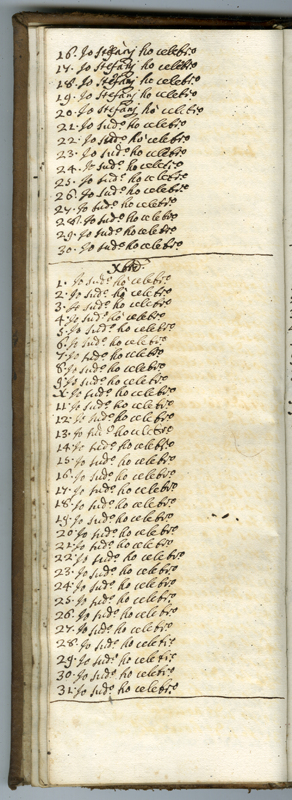 16. Io Stefanj hò celebro
17. Io Stefanj hò celebro
18. Io Stefanj hò celebro
19. Io Stefanj hò celebro
20. Io Stefanj hò celebro
21. Io sud.o hò celebro
22. Io sud.o hò celebro
23. Io sud.o hò celebro
24. Io sud.o hò celebro
25. Io sud.o hò celebro
26. Io sud.o hò celebro
27. Io sud.o hò celebro
28. Io sud.o hò celebro
29. Io sud.o hò celebro
30. Io sud.o hò celebro
Xbre
1. Io sud.o hò celebro
2. Io sud.o hò celebro
3. Io sud.o hò celebro
4. Io sud.o hò celebro
5. Io sud.o hò celebro
6. Io sud.o hò celebro
7. Io sud.o hò celebro
8. Io sud.o hò celebro
9. Io sud.o hò celebro
X. Io sud.o hò celebro
11. Io sud.o hò celebro
12. Io sud.o hò celebro
13. Io sud.o hò celebro
14. Io sud.o hò celebro
15. Io sud.o hò celebro
16. Io sud.o hò celebro
17. Io sud.o hò celebro
18. Io sud.o hò celebro
19. Io sud.o hò celebro
20. Io sud.o hò celebro
21. Io sud.o hò celebro
22. Io sud.o hò celebro
23. Io sud.o hò celebro
24. Io sud.o hò celebro
25. Io sud.o hò celebro
26. Io sud.o hò celebro
27. Io sud.o hò celebro
28. Io sud.o hò celebro
29. Io sud.o hò celebro
30. Io sud.o hò celebro
31. Io sud.o hò celebro